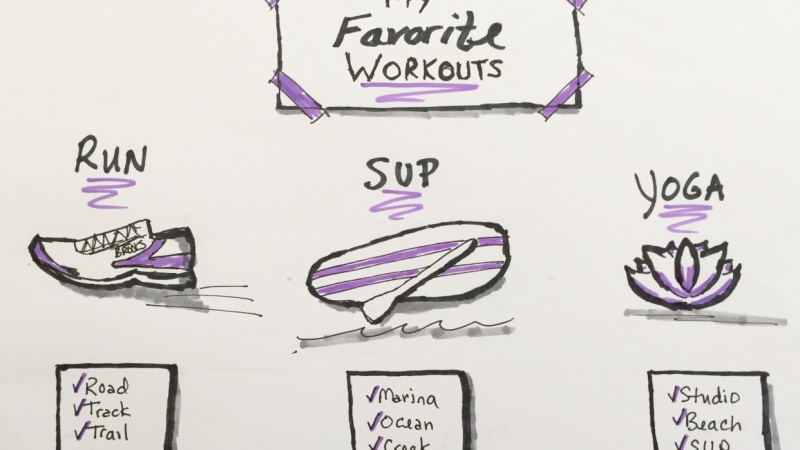 My
Favorite
WORKOUTS
RUN
SUP
YOGA
BROOKS
✓Road
✓Track
✓Trail
✓Marina
✓Ocean
✓Creek
✓Studio
✓Beach
✓SUP